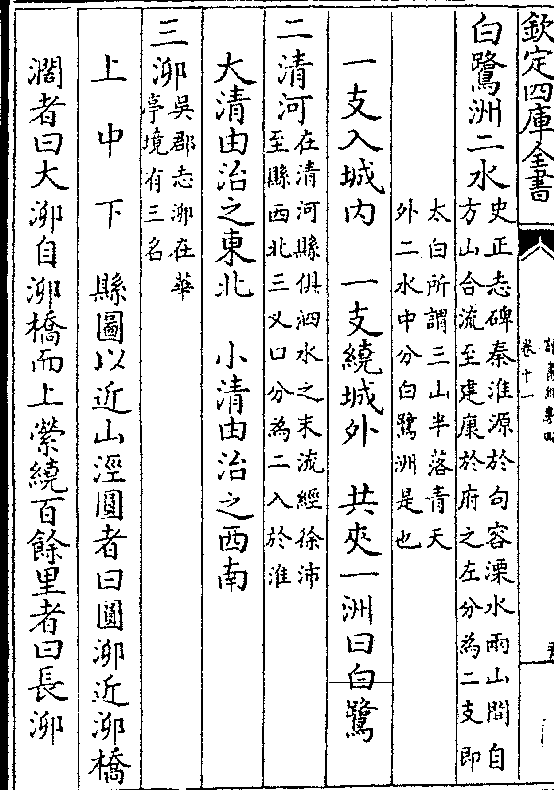 欽定四庫全書
卷十一
白鷺洲二水
史正志碑秦淮源於句容溧水兩山間自
方山合流至建康於府之左分為二支即
太白所謂三山半落青天
外二水中分白鷺洲是也
一支入城内　一支繞城外　共夾一洲曰白鷺
二清河
在清河縣俱泗水之末流經徐沛
至縣西北三乂口分為二入於淮
大清由治之東北　小清由治之西南
三泖
吳郡志泖在華
亭境有三名
上　中　下　縣圖以近山涇圓者曰圓泖近泖橋
濶者曰大泖自泖橋而上縈繞百餘里者曰長泖